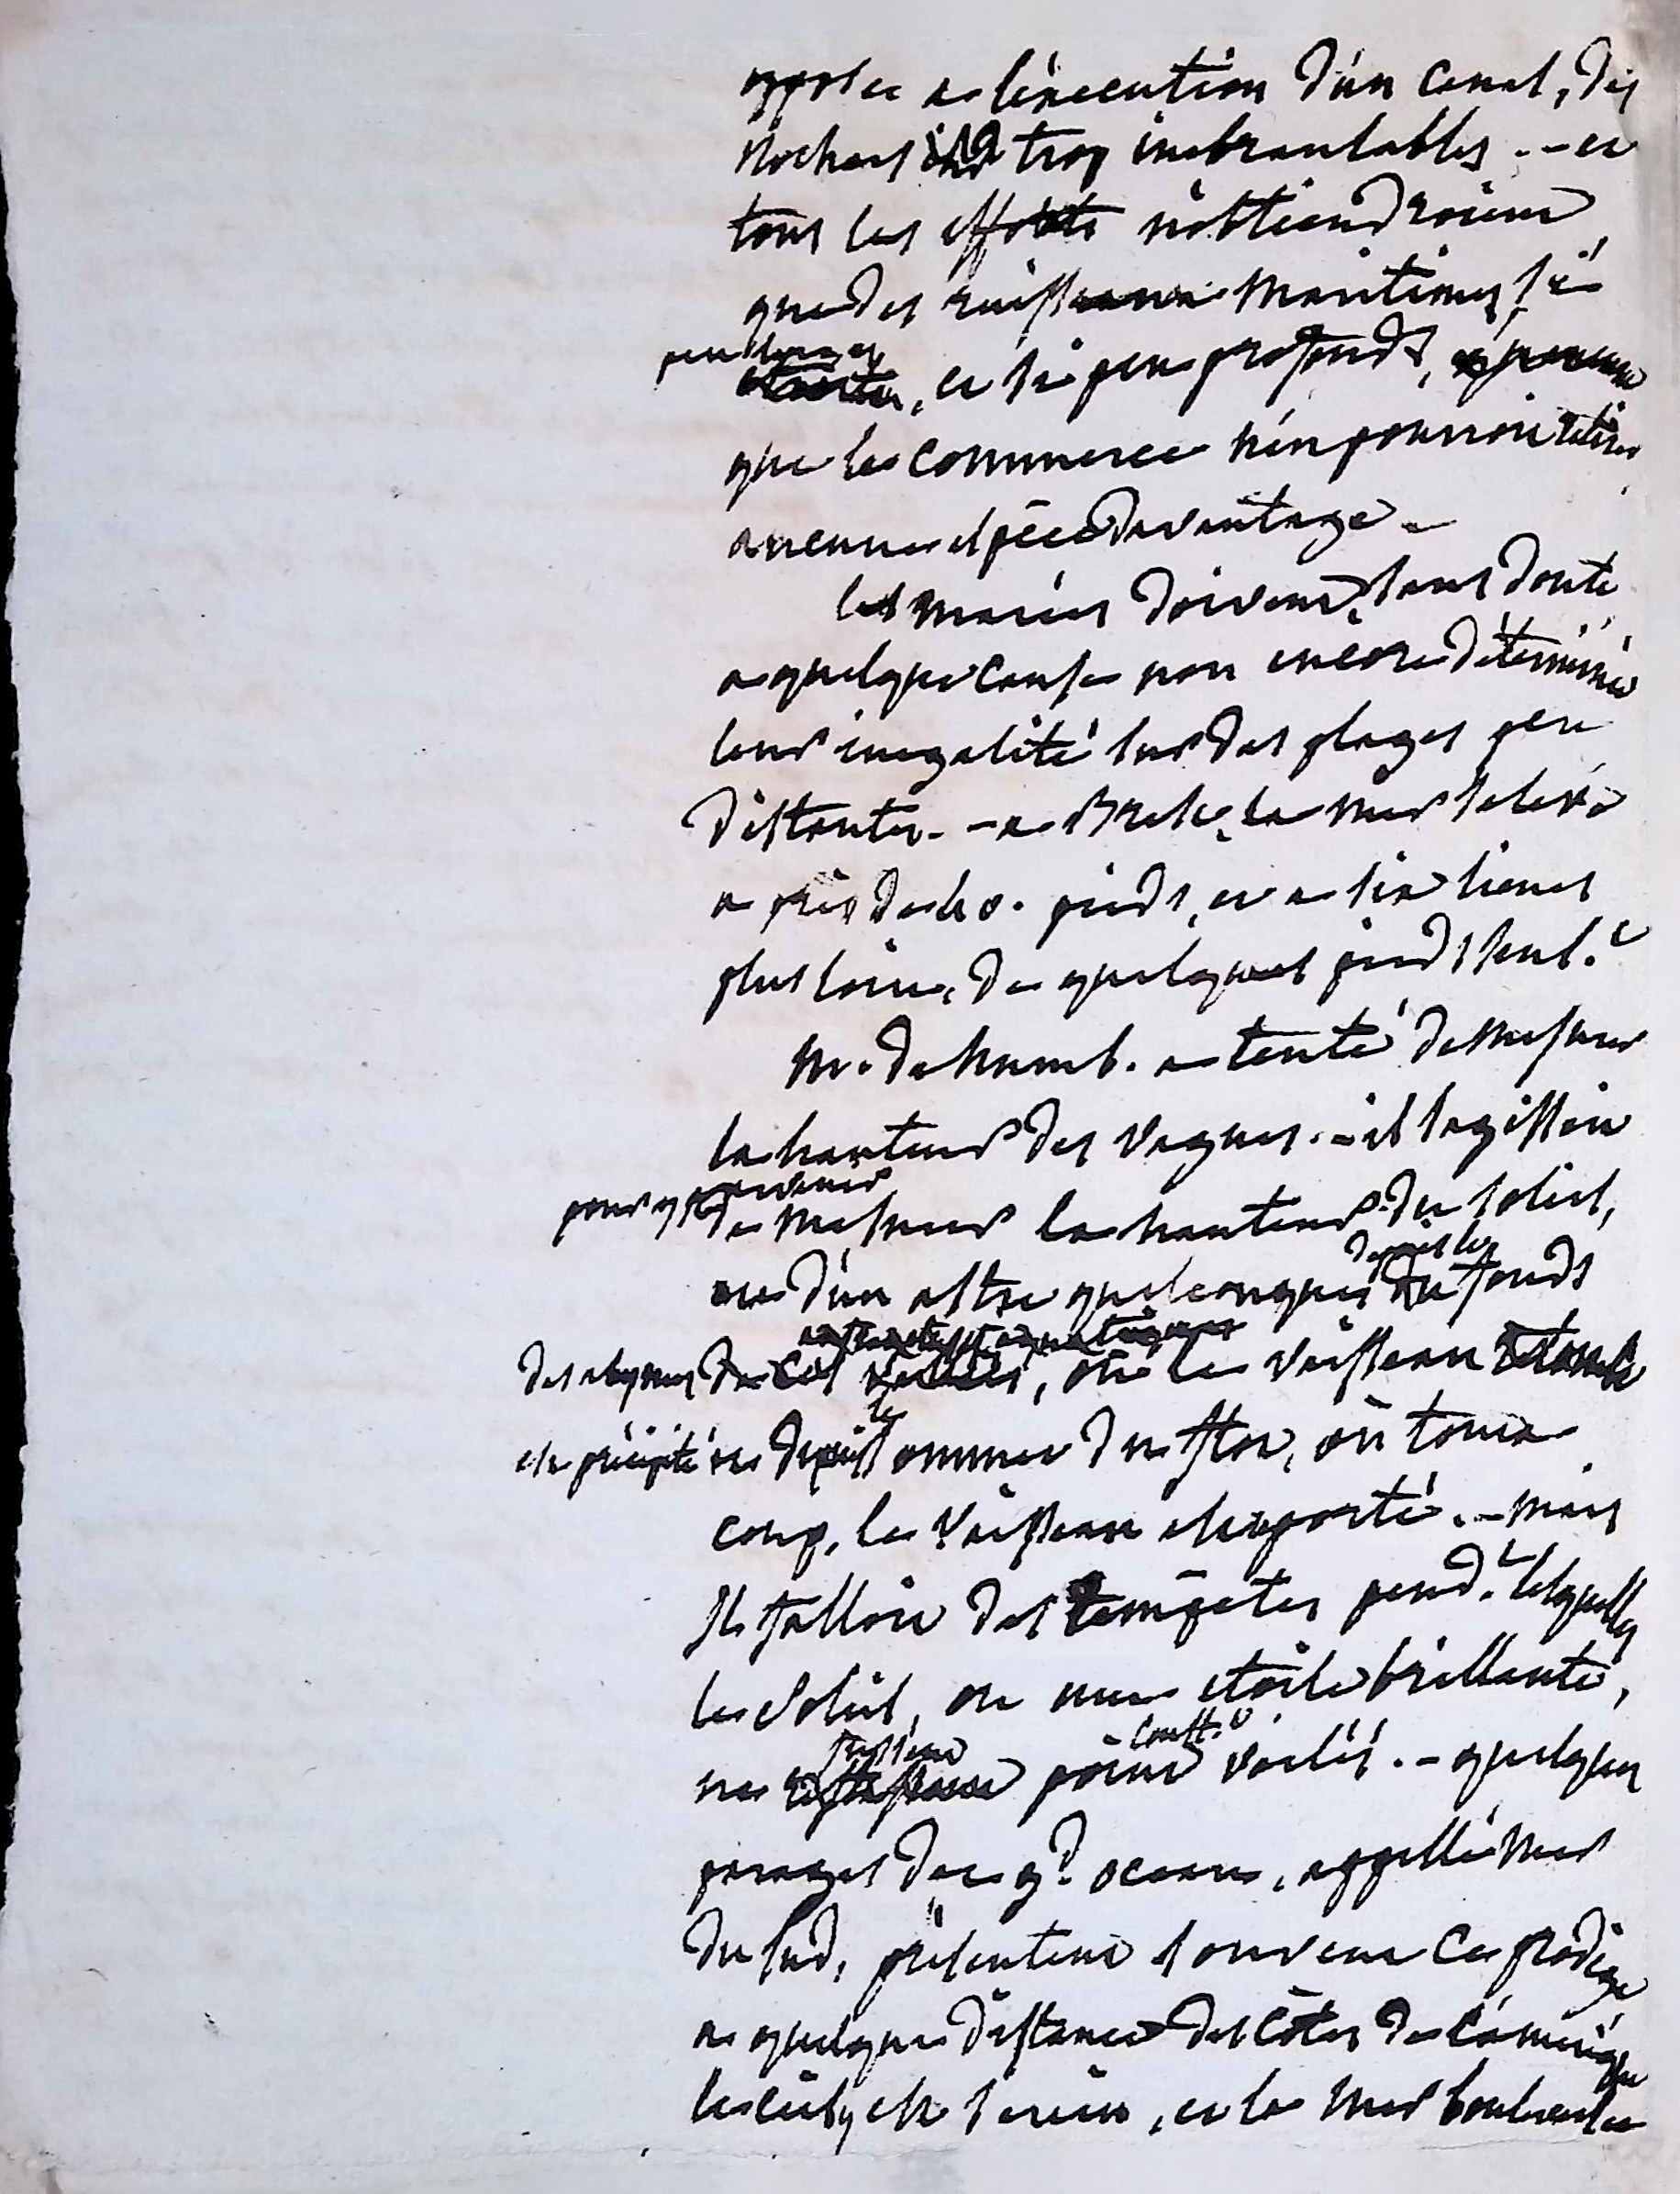 opposer a l'éxécution d'un canal, des
rochers trop inébranlables. - et
tous les efforts n'obtiendroient
que des ruisseaux maritimes, si
peu larges
et si peu profonds,
que le commerce n'en pourroit retirer
aucune espèce d'avantage.
les marées doivent, sans doute
a quelque cause non encore déterminée
leur inégalité sur des plages peu
distantes. - a Brest, la mer s'eleve
a près de 60. pieds, et a six lieues
plus loin, de quelques pieds seul.t
Mr. de humb. a tenté de mesurer
la hauteur des vagues. - il s'agissoit
pour y parvenir
de mesurer la hauteur du soleil,
ou d'un astre quelconque depuis le fonds
des abymes où le vaisseau
est précipité ou depuis le sommet du flot, où tout a
coup, le vaisseau est porté. - mais
il falloit des tempêtes pend.t lesquelles
le soleil, ou une étoile brillante,
ne fussent point const.t voilés. - quelques
parages de ce g.d ocean, appellé mer
du sud, présentent souvent ce prodige
a quelque distance des côtes de l'amérique
le ciel y est serein, et la mer bouleversée